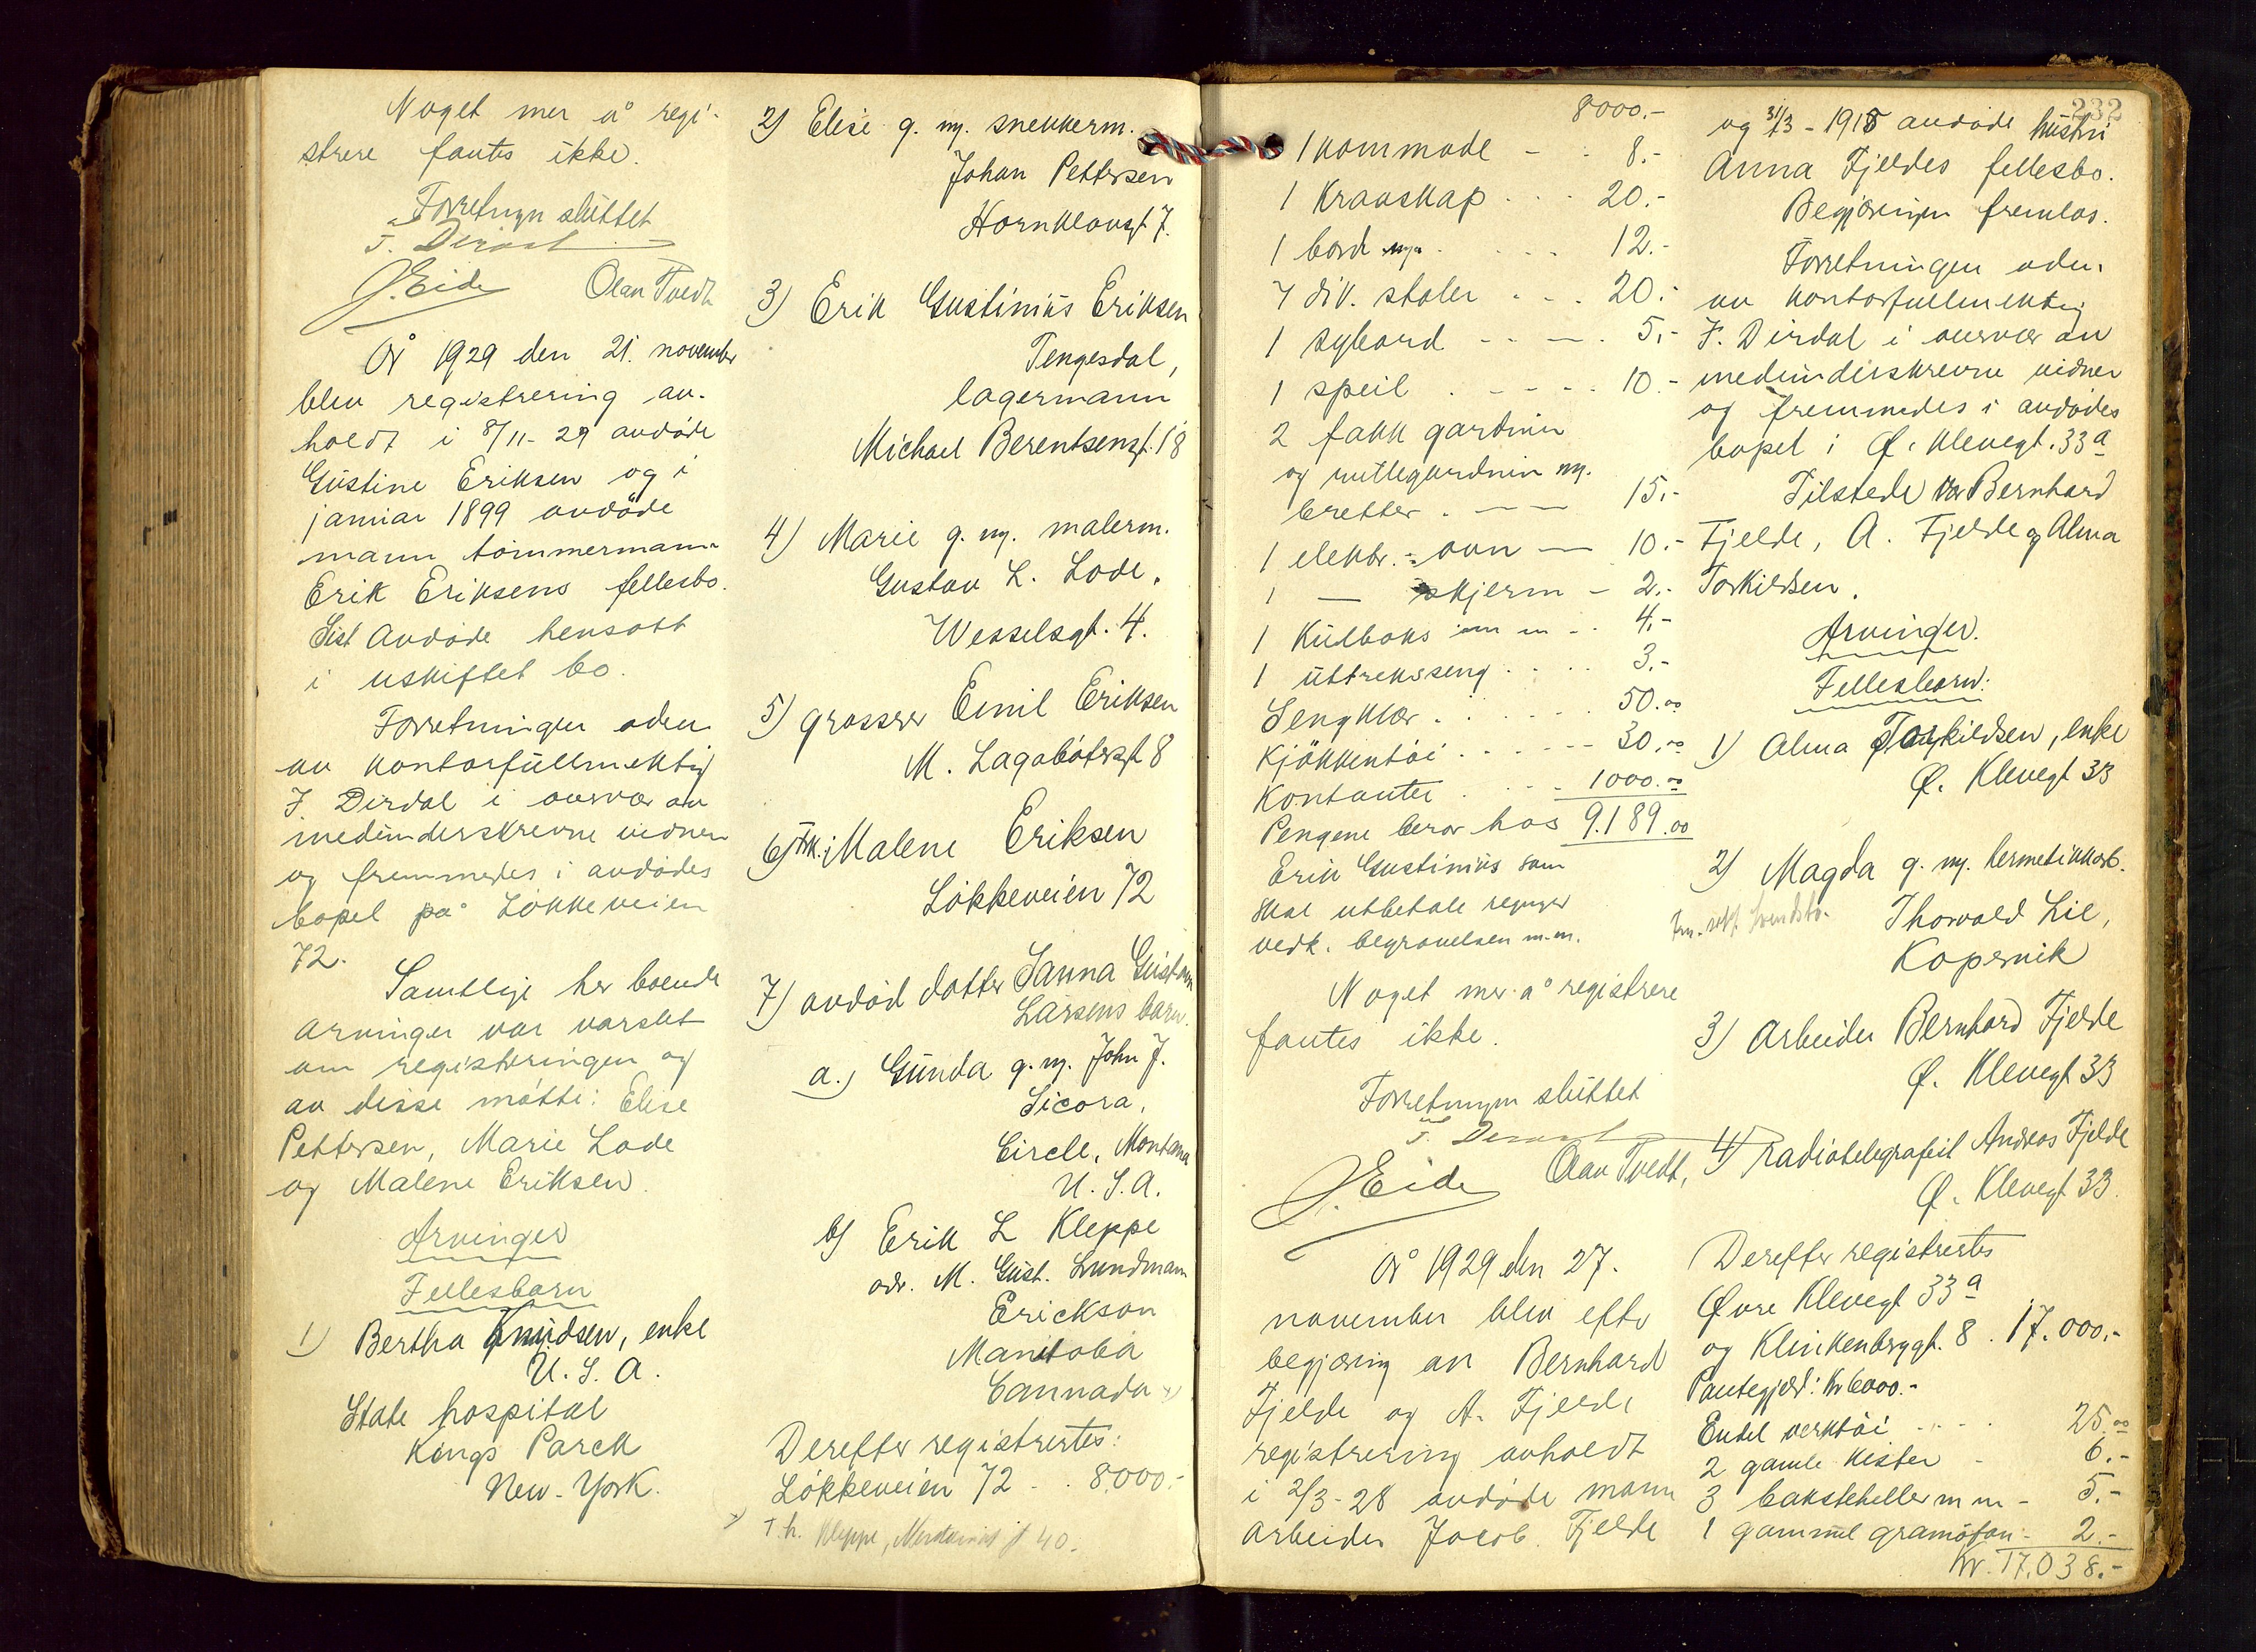 Noget mer å regi-
strere fantes ikke.
Forretningen sluttet
F. Dirdal
J. Eide Olav Tvedt
År 1929 den 21. november
blev registrering av-
holdt i 8/11-29 avdøde
Gustine Eriksen og i
januar 1899 avdøde
mann tømmermann
Erik Eriksens fellesbo.
Sist avdøde hensatt
i uskiftet bo.
Forretningen aden.
av kontorfullmektig
F. Dirdal i overvær av
medunderskrevne vidner
og fremmedes i avdødes
bopel på Løkkeveien
72.
Samtlige her boende
arvinger var varslet
om registreringen og
av disse møtte: Elise
Pettersen, Marie Lode
og Malene Eriksen.
Arvinger
Fellesbarn
1) Bertha Knudsen, enke
U. S. A.
State hospital
Kings Parck
New-York.
2) Elise g. m. snekkerm.
Johan Pettersen
Hornklovsgt 7.
3) Erik Gustinius Eriksen
Tengesdal,
lagermann
Michael Berentsensgt. 18
4) Marie g. m. malerm.
Gustav L. Lode,
Wesselsgt. 4.
5) grosserer Emil Eriksen
M. Lagabøtersgt 8
6) frk. Malene Eriksen
Løkkeveien 72
7) avdød datter Sanna Gustava
Larsens barn.
a.) Gunda g. m. John J.
Sicora,
Circle, Montana
U. S. A.
b) Erik L Kleppe
adr. M. Gust. Lundmann
Erickson
Manitoba
Cannada x)
Derefter registrertes:
Løkkeveien 72 - . 8000.-
x) T. h. Kleppe, gt 40.
232
8000.-
1 kommode - - 8.-
1 Kravskap . . . 20.-
1 bord . . . . 12.-
7 div. stoler . . . 20.-
1 sybord - - - . 5.-
1 speil . - - - . 10.-
2 fakk gardiner
og rullegardiner m.
bretter . - - 15.-
1 elektr. ovn - 10.-
1 — skjerm - 2.-
1 Kulboks m m - . 4.-
1 uttreksseng . . . . 3.-
Sengklær . . . . . . 50.00
Kjøkkentøi . . . . - - - 30.00
Kontanter . . . . 1000.00
Pengene beror hos 9.189.00
Erik Gustinius som
skal utbetale regninger
vedk. begravelsen m.m.
Noget mer å registrere
fantes ikke.
Forretningen sluttet
F. Dirdal
J. Eide Olav Tvedt,
År 1929 den 27.
november blev efter
begjæring av Bernhard
Fjelde og A. Fjelde
registrering avholdt
i 2/3-28 avdøde mann
arbeider Jacob Fjelde
og 31/3-1915 avdøde hustru
Anna Fjeldes fellesbo.
Begjæringen fremlas.
Forretningen aden.
av kontorfullmektig
F. Dirdal i overvær av
medunderskrevne vidner
og fremmedes i avdødes
bopel i Ø. Klevegt. 33a
Tilstede var Bernhard
Fjelde, A. Fjelde og Alma
Torkildsen.
Arvinger.
Fellesbarn:
1) Alma Torkildsen, enke
Ø. Klevegt 33
2) Magda g. m. hermetikkarb.
Thorvald Lie,
Kopervik
3) Arbeider Bernhard Fjelde
Ø. Klevegt 33
4) radiotelegrafist Andreas Fjelde
Ø. Klevegt 33.
Derefter registrertes
Øvre Klevegt 33a
og Klinkenbergsgt. 8 . 17.000.-
Pantegjæld: Kr 6000.-
Endel verktøi . . - . 25.00
2 gamle kister - 6.-
3 baksteheller m m - 5.-
1 gammel gramofon - 2.-
Kr. 17.038.-